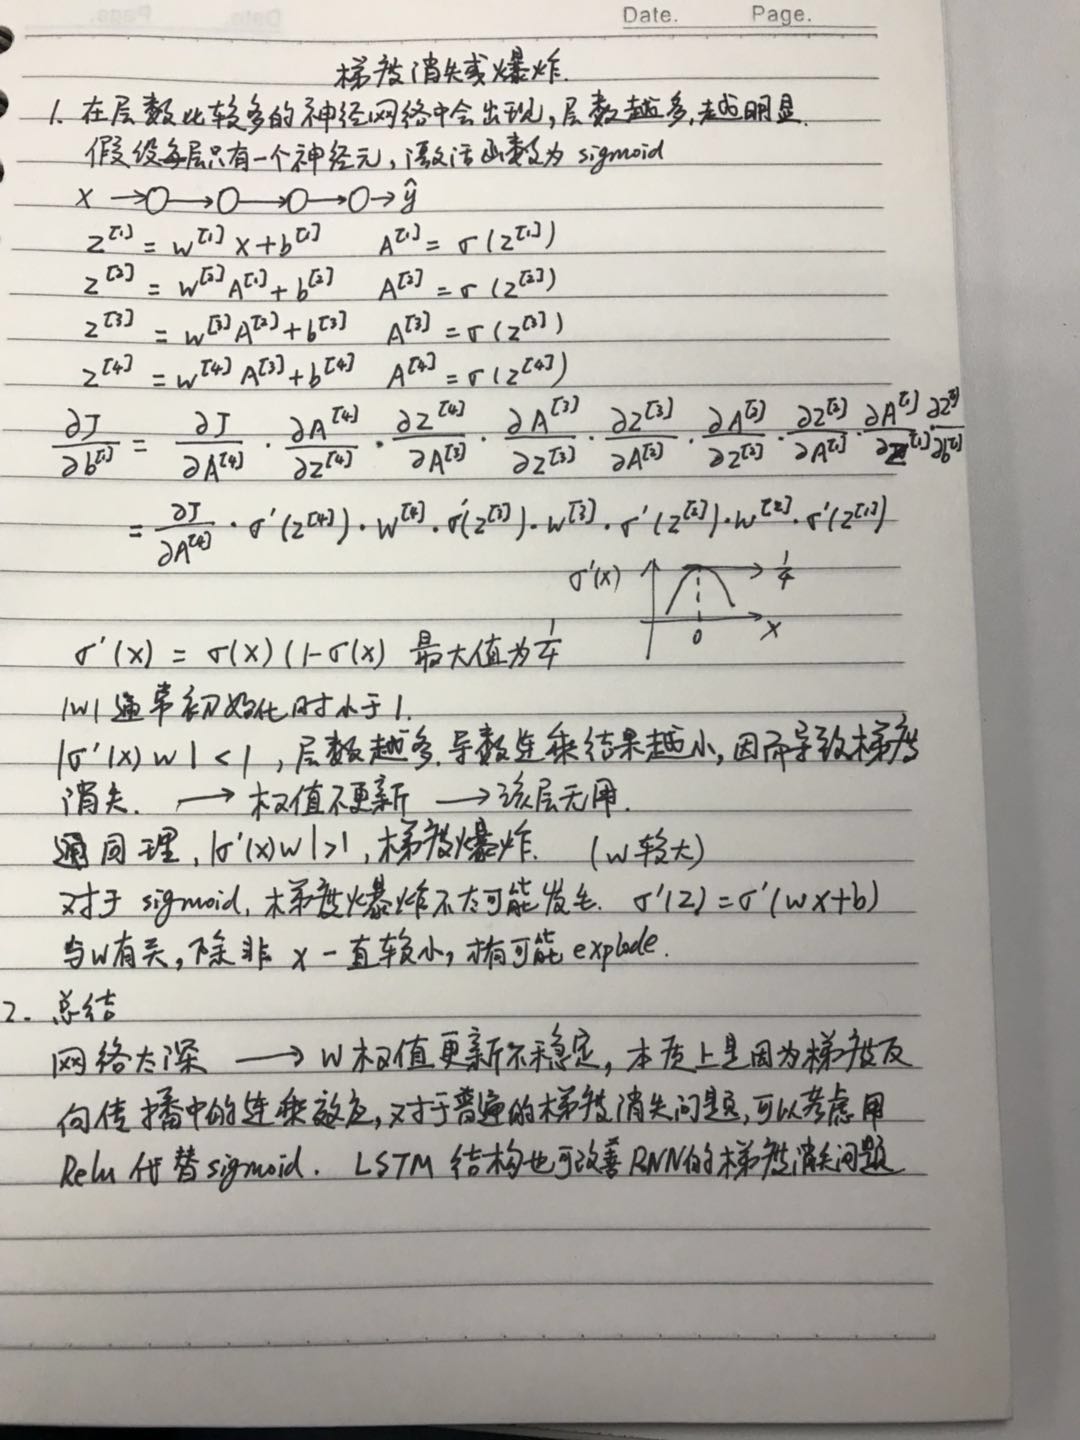 Date. Page.
梯度消失或爆炸.
1. 在层数比较多的神经网络中会出现,层数越多,越明显.
假设每层只有一个神经元,激活函数为 sigmoid
X →○→○→○→○→ ŷ
Z^[1] = W^[1] X + b^[1] A^[1] = σ(Z^[1])
Z^[2] = W^[2] A^[1] + b^[2] A^[2] = σ(Z^[2])
Z^[3] = W^[3] A^[2] + b^[3] A^[3] = σ(Z^[3])
Z^[4] = W^[4] A^[3] + b^[4] A^[4] = σ(Z^[4])
∂J/∂b^[1] = ∂J/∂A^[4] · ∂A^[4]/∂Z^[4] · ∂Z^[4]/∂A^[3] · ∂A^[3]/∂Z^[3] · ∂Z^[3]/∂A^[2] · ∂A^[2]/∂Z^[2] · ∂Z^[2]/∂A^[1] · ∂A^[1]/∂Z^[1] · ∂Z^[1]/∂b^[1]
= ∂J/∂A^[4] · σ'(Z^[4]) · W^[4] · σ'(Z^[3]) · W^[3] · σ'(Z^[2]) · W^[2] · σ'(Z^[1])
σ'(X) 1/4
0 X
σ'(X) = σ(X) (1-σ(X) 最大值为 1/4
|W| 通常初始化时小于1.
|σ'(X) W| < 1, 层数越多,导数连乘结果越小,因而导致梯度
消失. → 权值不更新 → 该层无用.
同理, |σ'(X)W|>1, 梯度爆炸. (W较大)
对于 sigmoid, 梯度爆炸不太可能发生. σ'(Z) = σ'(WX+b)
与W有关,除非 X 一直较小,才有可能 explode.
2. 总结
网络太深 → W权值更新不稳定,本质上是因为梯度反
向传播中的连乘效应,对于普遍的梯度消失问题,可以考虑用
Relu 代替 sigmoid. LSTM 结构也可改善RNN的梯度消失问题